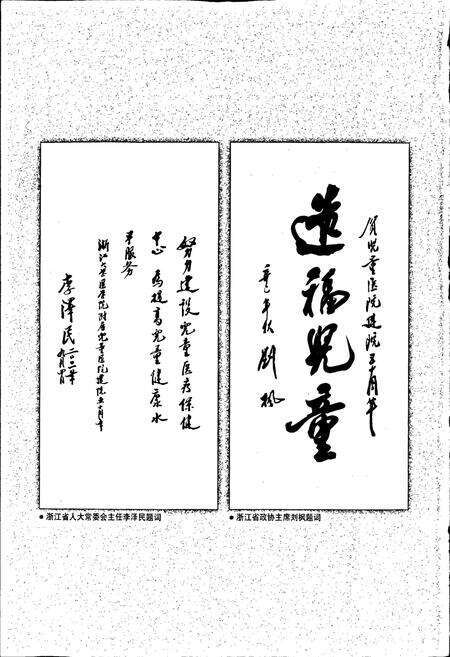 贺儿童医院建院五十周年
造福儿童
辛巳年秋 刘枫
● 浙江省政协主席刘枫题词
努力建设儿童医疗保健
中心 为提高儿童健康水
平服务
浙江大学医学院附属儿童医院建院五十周年
李泽民 二〇〇一年
● 浙江省人大常委会主任李泽民题词